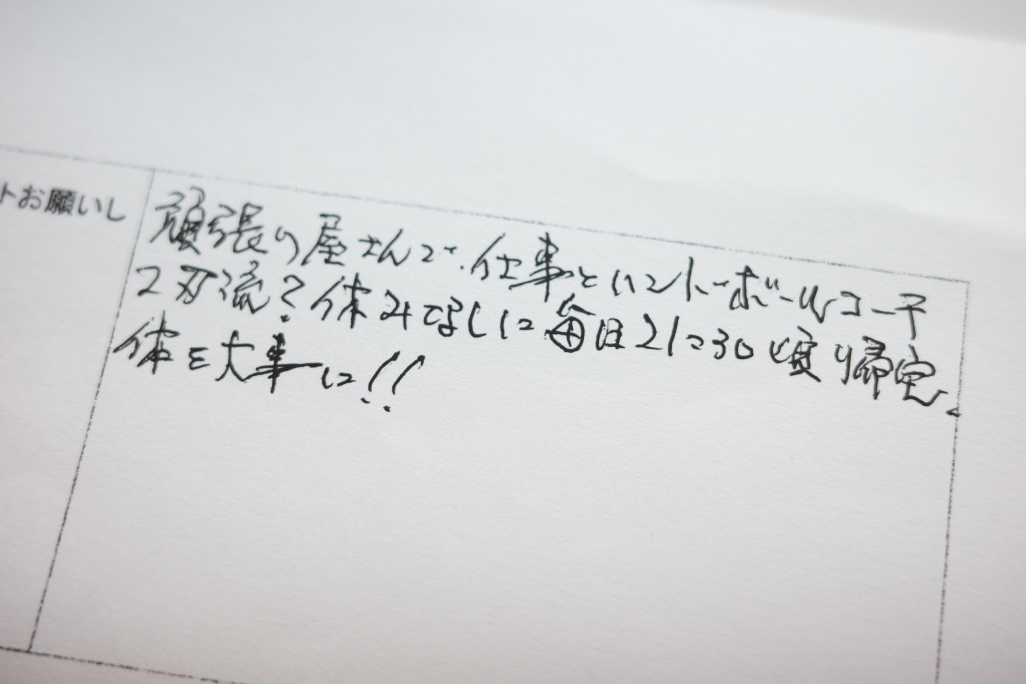 トお願いし
頑張り屋さんで、仕事とハンドボールコーチ
2刀流?休みなしに毎日21:30頃帰宅。
体を大事に!!